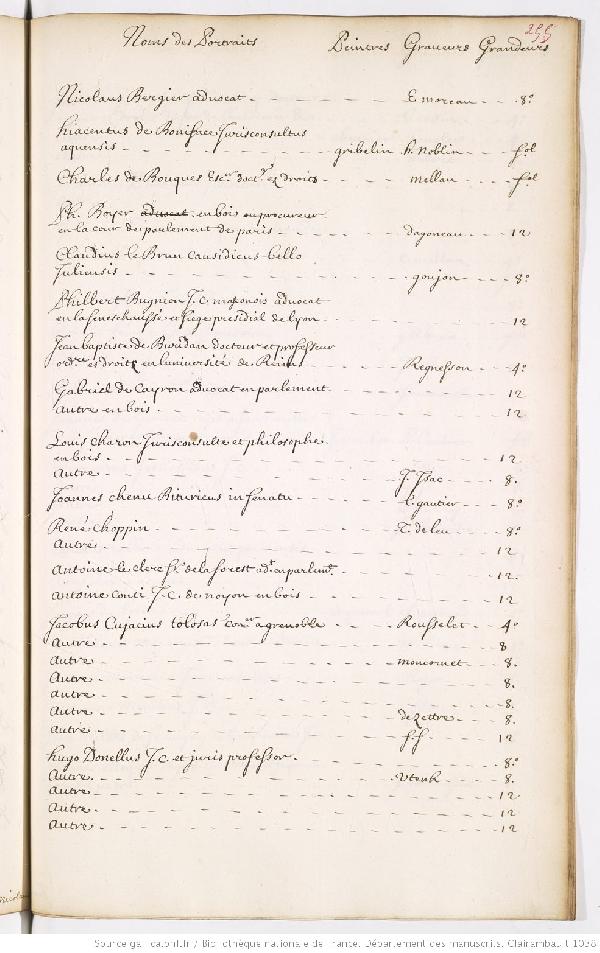 Noms des Portraits Peintres Graveurs Grandeurs
Nicolaus Bergier advocat - - - - E moreau - - - 8°
hiacentus de Boniface Jurisconsultus
aquensis - - - - gribelin h. noblin - - - fol
Charles de Bouques Esc.r doct.r ez droits - - - mellan - - - fol
Ph. Boyer advocat en bois en procureur
en la cour de parlement de paris - - - - dagoneau - - - 12
Claudius le Brun causidicus bello
Juliensis - - - - goujon - - - 8°
Philbert Bugnion J. C. masconois advocat
en la seneschaussé et siege presidial de lyon - - - - 12
Jean baptiste de Buridan docteur et professeur
ord.re es droits en luniversité de Reims - - - Regnesson - - 4°
Gabriel de Cayron advocat en parlement - - - - 12
Autre en bois - - - - 12
Louis charon Jurisconsulte et philosophe
en bois - - - - 12
Autre - - - - J. Isac - - - 8.
Joannes chenu Bituricus in senatu - - - - L. gautier - - - 8°
René Choppin - - - - T. de leu - - - 8°
Autre - - - - 12
Antoine le clerc s.r de la forest ad.t en parlem.t - - - - 12.
Antoine Conti J. C. de noyon en bois - - - - 12
Jacobus Cujacius tolosas con.er a grenoble - - - Rousselet - - 4°
Autre - - - - 8
Autre - - - - moncornet - - 8.
Autre - - - - 8.
Autre - - - - 8.
Autre - - - - de Zettre - - - 8.
Autre - - - - f. f. - - - 12
hugo Donellus J. C. et juris professor - - - - 8.°
Autre - - - - 8.
Autre - - - - 12
Autre - - - - 12
Autre - - - - 12
Source gallica.bnf.fr / Bibliothèque nationale de France. Département des manuscrits. Clairambault 1038